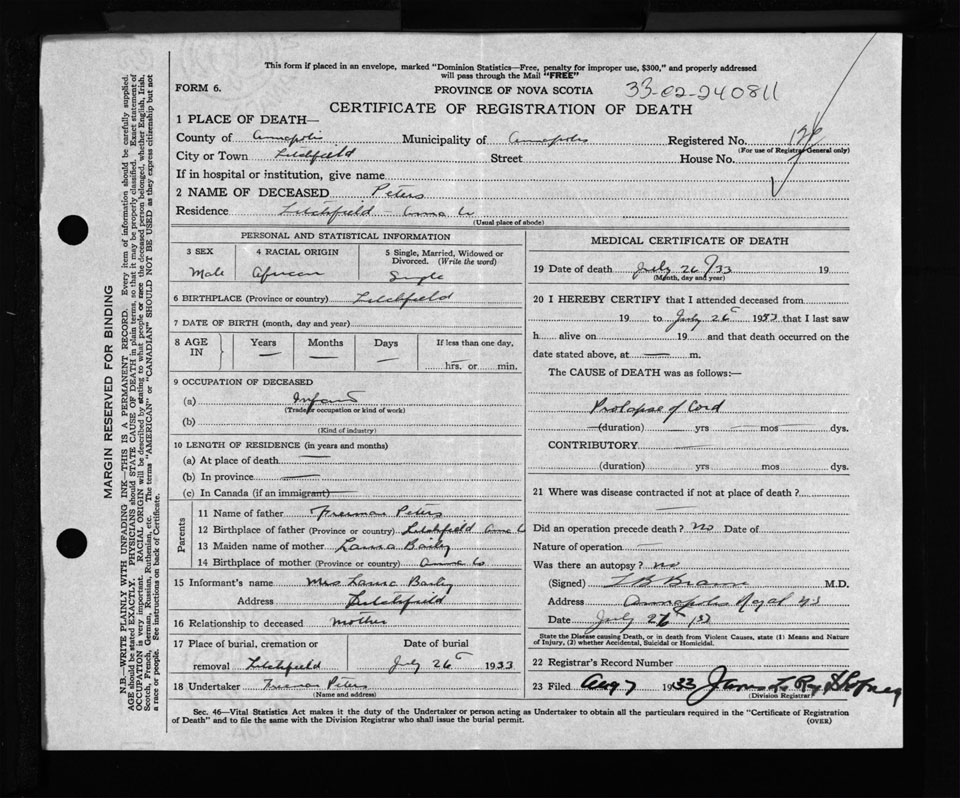 This form if placed in an envelope, marked "Dominion Statistics—Free, penalty for improper use, $300," and properly addressed
will pass through the Mail "FREE"
FORM 6. PROVINCE OF NOVA SCOTIA 33-02-240811
CERTIFICATE OF REGISTRATION OF DEATH
1 PLACE OF DEATH—
County of Annapolis Municipality of Annapolis Registered No.
(For use of Registrar General only)
City or Town Litchfield Street House No.
If in hospital or institution, give name
2 NAME OF DECEASED Peters
Residence Litchfield Anna Co
(Usual place of abode)
PERSONAL AND STATISTICAL INFORMATION
3 SEX 4 RACIAL ORIGIN 5 Single, Married, Widowed or
Divorced. (Write the word)
Male African Single
6 BIRTHPLACE (Province or country) Litchfield
7 DATE OF BIRTH (month, day and year)
8 AGE IN Years Months Days If less than one day,
— — — hrs. or min.
9 OCCUPATION OF DECEASED
(a) Infant
(Trade or occupation or kind of work)
(b)
(Kind of industry)
10 LENGTH OF RESIDENCE (in years and months)
(a) At place of death —
(b) In province —
(c) In Canada (if an immigrant) —
Parents
11 Name of father Freeman Peters
12 Birthplace of father (Province or country) Litchfield Anna C
13 Maiden name of mother Laura Baily
14 Birthplace of mother (Province or country) Anna Co
15 Informant's name Mrs Laura Baily
Address Litchfield
16 Relationship to deceased mother
17 Place of burial, cremation or Date of burial
removal Litchfield July 26 1933
18 Undertaker Freeman Peters
(Name and address)
MEDICAL CERTIFICATE OF DEATH
19 Date of death July 26/33 19
(Month, day and year)
20 I HEREBY CERTIFY that I attended deceased from
19 to July 26 1933 that I last saw
h alive on 19 and that death occurred on the
date stated above, at — m.
The CAUSE of DEATH was as follows:—
Prolapse of Cord
(duration) — yrs — mos — dys.
CONTRIBUTORY —
(duration) yrs mos dys.
21 Where was disease contracted if not at place of death?
—
Did an operation precede death? no Date of
Nature of operation —
Was there an autopsy? no
(Signed) M.D.
Address Annapolis Royal NS
Date July 26 /33
State the Disease causing Death, or in death from Violent Causes, state (1) Means and Nature
of Injury, (2) whether Accidental, Suicidal or Homicidal.
22 Registrar's Record Number
23 Filed Aug 7 1933
(Division Registrar)
Sec. 46—Vital Statistics Act makes it the duty of the Undertaker or person acting as Undertaker to obtain all the particulars required in the "Certificate of Registration
of Death" and to file the same with the Division Registrar who shall issue the burial permit. (OVER)
MARGIN RESERVED FOR BINDING
N.B.—WRITE PLAINLY WITH UNFADING INK—THIS IS A PERMANENT RECORD. Every item of information should be carefully supplied.
AGE should be stated EXACTLY. PHYSICIANS should STATE CAUSE OF DEATH in plain terms, so that it may be properly classified. Exact statement of
OCCUPATION is very important. RACIAL ORIGIN will be described by stating to what people or race the deceased person belonged, whether English, Irish,
Scotch, French, German, Russian, Ruthenian, etc. The terms "AMERICAN" or "CANADIAN" SHOULD NOT BE USED as they express citizenship but not
a race or people. See instructions on back of Certificate.